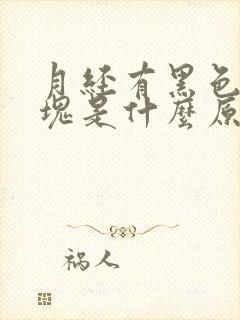 月经有黑色
塊是什麼原
祸人